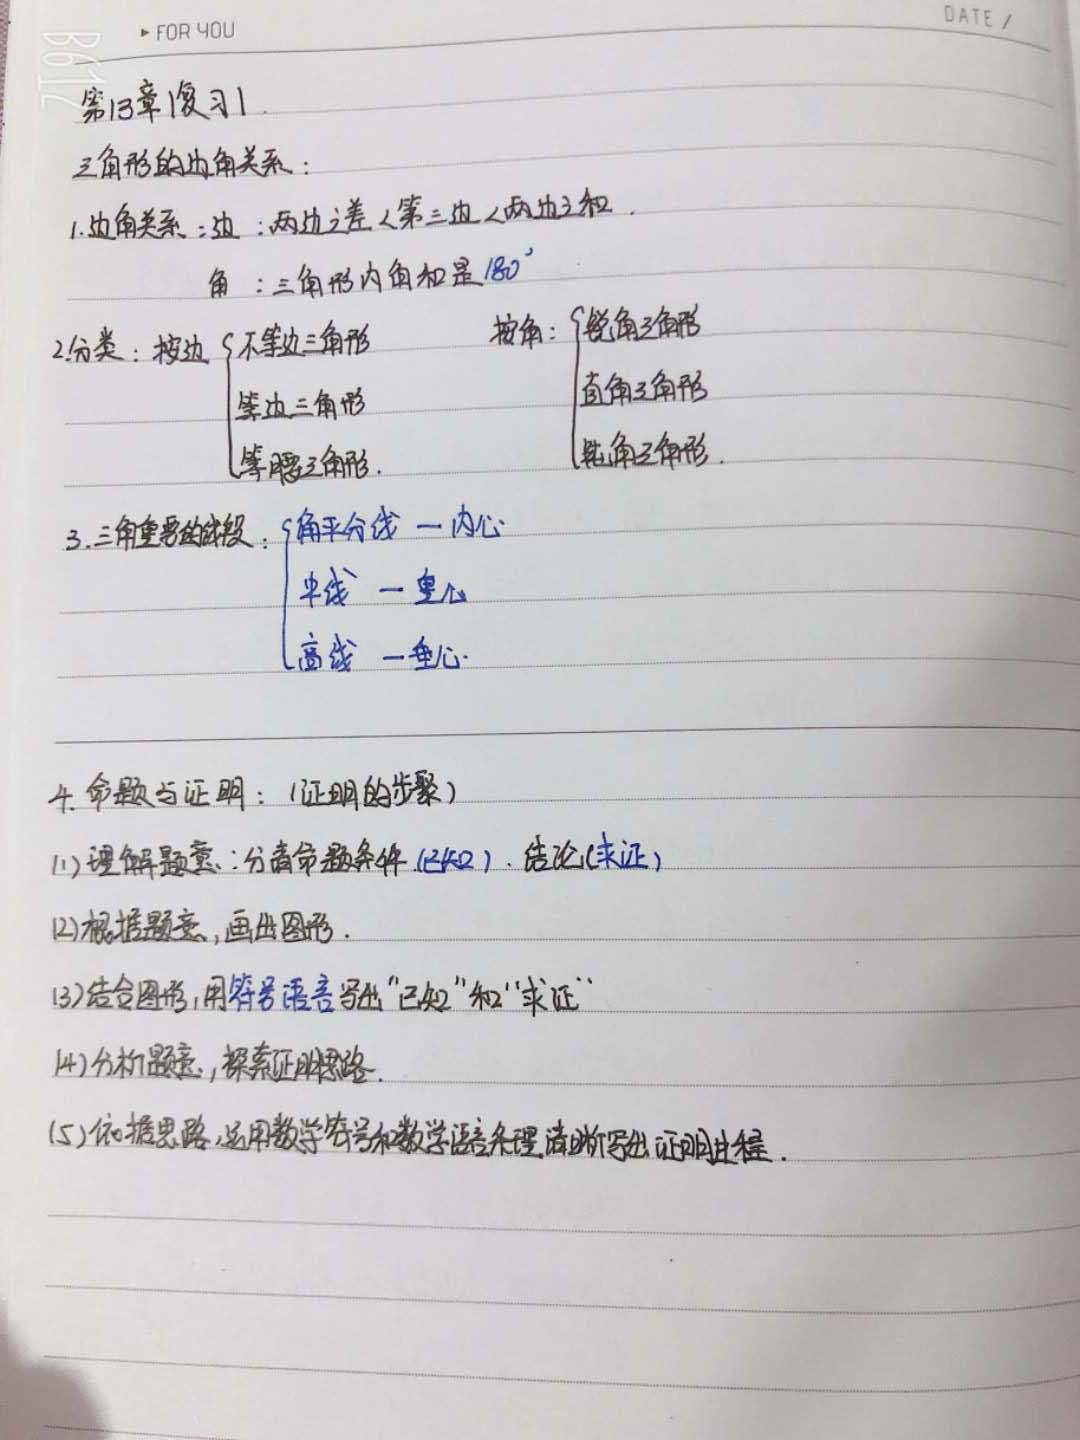 B612
▸ FOR YOU
DATE /
第13章复习1.
三角形的边角关系：
1.边角关系：边：两边之差<第三边<两边之和.
角：三角形内角和是180°
2.分类：按边 不等边三角形 按角： 锐角三角形
等边三角形 直角三角形
等腰三角形. 钝角三角形.
3.三角重要的线段： 角平分线 — 内心
中线 — 重心
高线 — 垂心.
4.命题与证明：(证明的步聚)
(1)理解题意：分清命题条件(已知).结论(求证)
(2)根据题意,画出图形.
(3)结合图形,用符号语言写出"已知"和"求证"
(4)分析题意,探索证明思路.
(5)依据思路,运用数学符号和数学语言条理清晰写出证明过程.